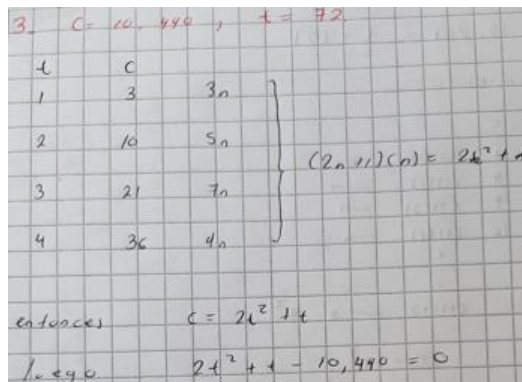 3. C= 10,440 , t = 72
t C
1 3 3n
2 10 5n
3 21 7n
4 36 9n
(2n+1)(n) = 2t² +
entonces C = 2t² + t
luego 2t² + t - 10,440 = 0